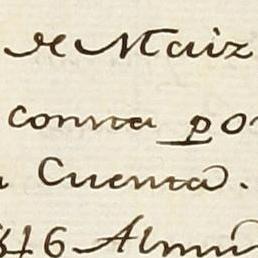 de Maiz
conna po
Cuenta.
846 Almu